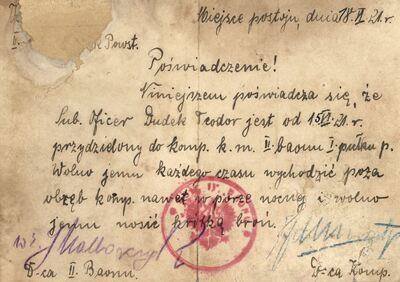 Miejsce postoju, dnia 18.VI.21.r.
Powst.
Poświadczenie!
Niniejszem poświadcza się, że
Sub. Oficer Dudek Teodor jest od 15VI.21.r.
przydzielony do komp. k.m. II. baonu I. pułku p.
Wolno jemu każdego czasu wychodzić poza
obręb komp. nawet w porze nocnej i wolno
jemu nosić krótką broń.
D-ca II. Baonu. D-ca Komp.